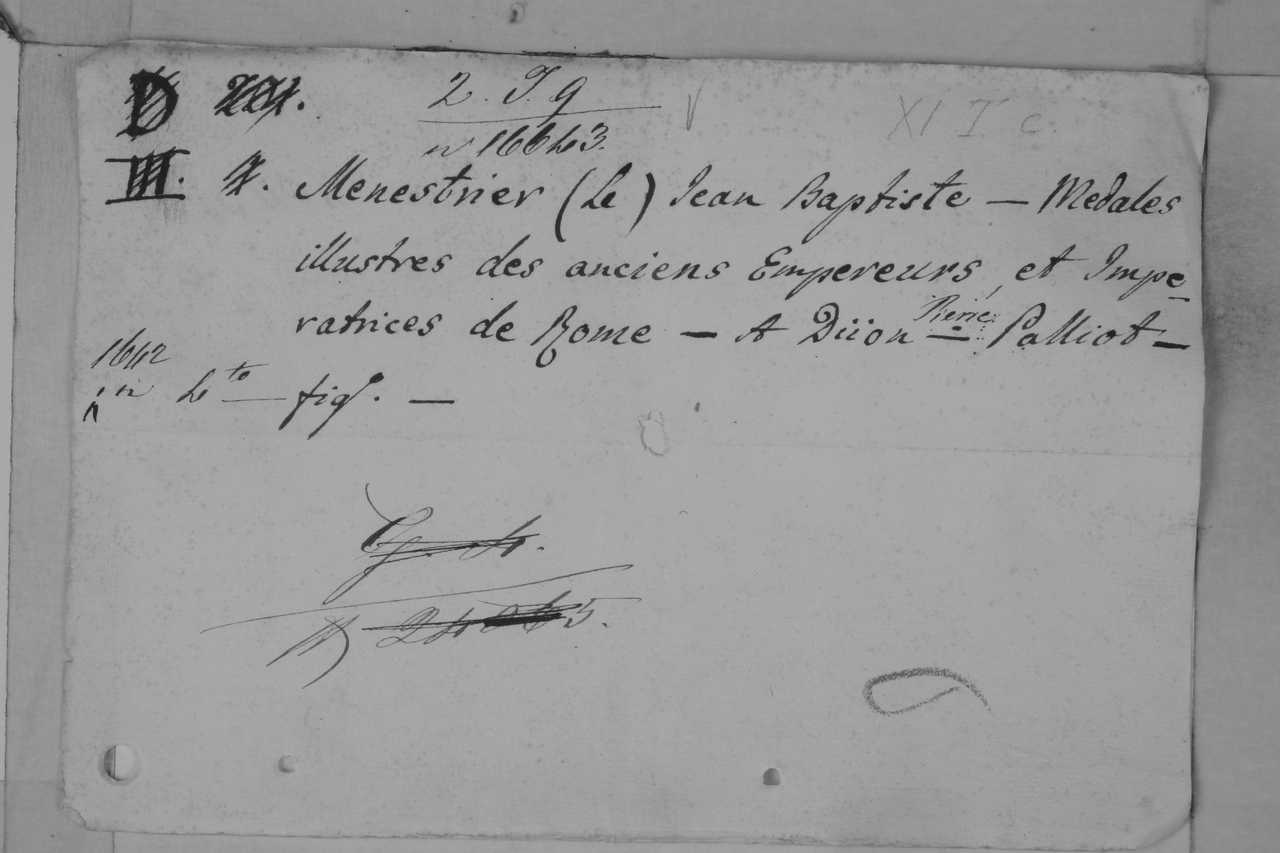 D
2. J. g
XI I c.
nº 16643.
III. 4. Menestrier (Le) Jean Baptiste — Medales
illustres des anciens Empereurs, et Impe-
ratrices de Rome — A Diion — Pierre Palliot —
1642
in 4to — figs. —
G. 4.
5.